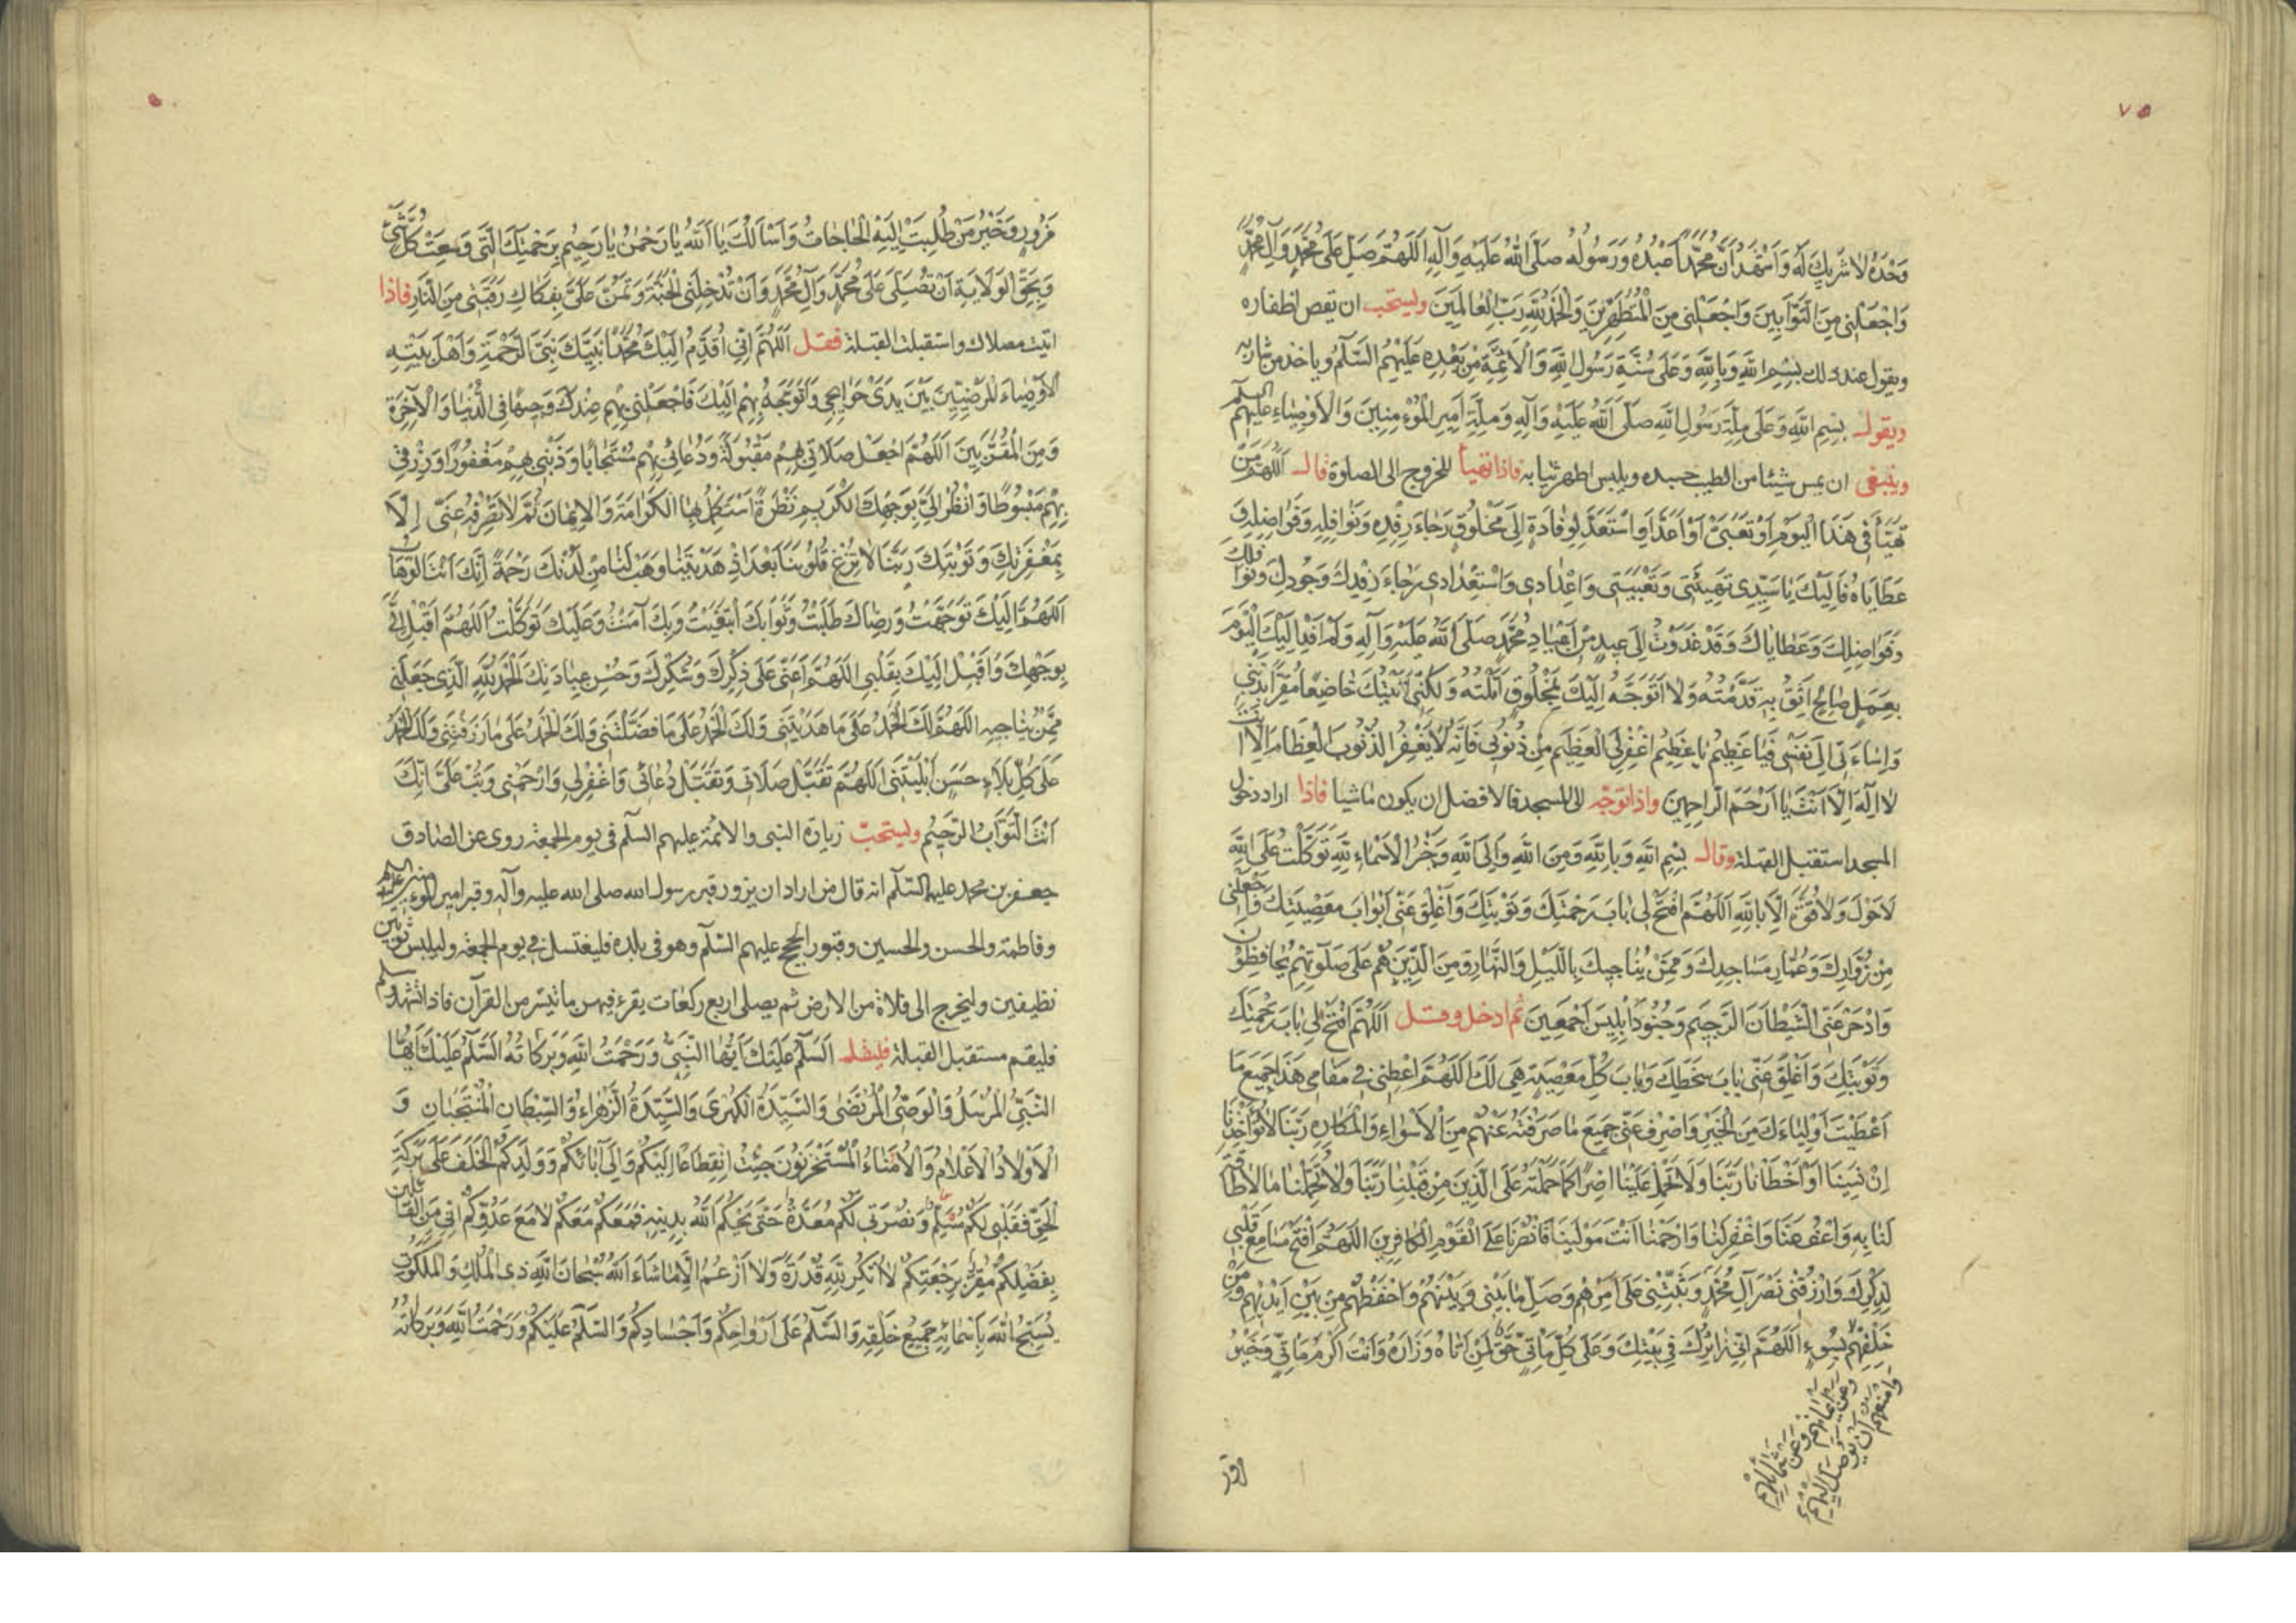 ٧٥
وَحْدَهُ لَا شَرِيكَ لَهُ وَاَشْهَدُ اَنَّ مُحَمَّدًا عَبْدُهُ وَرَسُولُهُ صَلَّى اللهُ عَلَيْهِ وَآلِهِ اَللّٰهُمَّ صَلِّ عَلٰى مُحَمَّدٍ وَآلِ مُحَمَّدٍ
وَاجْعَلْنِي مِنَ التَّوَّابِينَ وَاجْعَلْنِي مِنَ الْمُتَطَهِّرِينَ وَالْحَمْدُ لِلّٰهِ رَبِّ الْعَالَمِينَ ويستحب ان يقص اظفاره
ويقول عند ذلك بِسْمِ اللهِ وَبِاللهِ وَعَلٰى سُنَّةِ رَسُولِ اللهِ وَالْاَئِمَّةِ مِنْ بَعْدِهِ عَلَيْهِمُ السَّلَمُ وياخذ من شاربه
ويقول بِسْمِ اللهِ وَعَلٰى مِلَّةِ رَسُولِ اللهِ صَلَّى اللهُ عَلَيْهِ وَآلِهِ وَمِلَّةِ اَمِيرِ الْمُؤْمِنِينَ وَالْاَوْصِيَاءِ عَلَيْهِمُ السَّلَم
وينبغى ان يمس شيئا من الطيب جسده ويلبس اطهر ثيابه فاذا تهيأ للخروج الى الصلوة قال اَللّٰهُمَّ مَنْ
تَهَيَّأَ فِي هَذَا الْيَوْمِ اَوْ تَعَبَّى اَوْ اَعَدَّ اَوِ اسْتَعَدَّ لِوِفَادَةٍ اِلٰى مَخْلُوقٍ رَجَاءَ رِفْدِهِ وَنَوَافِلِهِ وَفَوَاضِلِهِ وَ
عَطَايَاهُ فَاِلَيْكَ يَا سَيِّدِي تَهْيِئَتِي وَتَعْبِيَتِي وَاِعْدَادِي وَاسْتِعْدَادِي رَجَاءَ رِفْدِكَ وَجُودِكَ وَنَوَافِلِكَ
وَفَوَاضِلِكَ وَعَطَايَاكَ وَقَدْ غَدَوْتُ اِلٰى عِيدٍ مِنْ اَعْيَادِ مُحَمَّدٍ صَلَّى اللهُ عَلَيْهِ وَآلِهِ وَلَمْ اَفِدْ اِلَيْكَ الْيَوْمَ
بِعَمَلٍ صَالِحٍ اَثِقُ بِهِ قَدَّمْتُهُ وَلَا اَتَوَجَّهُ اِلَيْكَ بِمَخْلُوقٍ اَمَّلْتُهُ وَلٰكِنِّي اَتَيْتُكَ خَاضِعًا مُقِرًّا بِذَنْبِي
وَاِسَاءَتِي اِلٰى نَفْسِي فَيَا عَظِيمُ يَا عَظِيمُ اغْفِرْ لِيَ الْعَظِيمَ مِنْ ذُنُوبِي فَاِنَّهُ لَا يَغْفِرُ الذُّنُوبَ الْعِظَامَ اِلَّا اَنْتَ
لَا اِلٰهَ اِلَّا اَنْتَ يَا اَرْحَمَ الرَّاحِمِينَ واذا توجّه الى المسجد فالافضل ان يكون ماشيا فاذا اراد دخول
المسجد استقبل القبلة وقال بِسْمِ اللهِ وَبِاللهِ وَمِنَ اللهِ وَاِلَى اللهِ وَخَيْرُ الْاَسْمَاءِ لِلّٰهِ تَوَكَّلْتُ عَلَى اللهِ
لَا حَوْلَ وَلَا قُوَّةَ اِلَّا بِاللهِ اَللّٰهُمَّ افْتَحْ لِي بَابَ رَحْمَتِكَ وَتَوْبَتِكَ وَاَغْلِقْ عَنِّي اَبْوَابَ مَعْصِيَتِكَ وَاجْعَلْنِي
مِنْ زُوَّارِكَ وَعُمَّارِ مَسَاجِدِكَ وَمِمَّنْ يُنَاجِيكَ بِاللَّيْلِ وَالنَّهَارِ وَمِنَ الَّذِينَ هُمْ عَلٰى صَلٰوتِهِمْ يُحَافِظُونَ
وَادْحَرْ عَنِّي الشَّيْطَانَ الرَّجِيمَ وَجُنُودَ اِبْلِيسَ اَجْمَعِينَ ثم ادخل وقل اَللّٰهُمَّ افْتَحْ لِي بَابَ رَحْمَتِكَ
وَتَوْبَتِكَ وَاَغْلِقْ عَنِّي بَابَ سَخَطِكَ وَبَابَ كُلِّ مَعْصِيَةٍ هِيَ لَكَ اَللّٰهُمَّ اَعْطِنِي فِي مَقَامِي هَذَا جَمِيعَ مَا
اَعْطَيْتَ اَوْلِيَاءَكَ مِنَ الْخَيْرِ وَاصْرِفْ عَنِّي جَمِيعَ مَا صَرَفْتَهُ عَنْهُمْ مِنَ الْاَسْوَاءِ وَالْمَكَارِهِ رَبَّنَا لَا تُؤَاخِذْنَا
اِنْ نَسِينَا اَوْ اَخْطَأْنَا رَبَّنَا وَلَا تَحْمِلْ عَلَيْنَا اِصْرًا كَمَا حَمَلْتَهُ عَلَى الَّذِينَ مِنْ قَبْلِنَا رَبَّنَا وَلَا تُحَمِّلْنَا مَا لَا طَاقَةَ
لَنَا بِهِ وَاعْفُ عَنَّا وَاغْفِرْ لَنَا وَارْحَمْنَا اَنْتَ مَوْلَينَا فَانْصُرْنَا عَلَى الْقَوْمِ الْكَافِرِينَ اَللّٰهُمَّ افْتَحْ مَسَامِعَ قَلْبِي
لِذِكْرِكَ وَارْزُقْنِي نَصْرَ آلِ مُحَمَّدٍ وَثَبِّتْنِي عَلٰى اَمْرِهِمْ وَصِلْ مَا بَيْنِي وَبَيْنَهُمْ وَاحْفَظْهُمْ مِنْ بَيْنِ اَيْدِيهِمْ وَمِنْ
خَلْفِهِمْ بِسُوءٍ اَللّٰهُمَّ اِنِّي زَائِرُكَ فِي بَيْتِكَ وَعَلٰى كُلِّ مَأْتِيٍّ حَقٌّ لِمَنْ اَتَاهُ وَزَارَهُ وَاَنْتَ اَكْرَمُ مَأْتِيٍّ وَخَيْرُ
وَعَنْ اَيْمَانِهِمْ وَعَنْ شَمَائِلِهِمْ
وَامْنَعْهُمْ اَنْ يُوصَلَ اِلَيْهِمْ
مَزُورٍ وَخَيْرُ مَنْ طُلِبَتْ اِلَيْهِ الْحَاجَاتُ وَاَسْاَلُكَ يَا اَللهُ يَا رَحْمٰنُ يَا رَحِيمُ بِرَحْمَتِكَ الَّتِي وَسِعَتْ كُلَّ شَيْءٍ
وَبِحَقِّ الْوَلَايَةِ اَنْ تُصَلِّيَ عَلٰى مُحَمَّدٍ وَآلِ مُحَمَّدٍ وَاَنْ تُدْخِلَنِي الْجَنَّةَ وَتَمُنَّ عَلَيَّ بِفَكَاكِ رَقَبَتِي مِنَ النَّارِ فاذا
اتيت مصلاك واستقبلت القبلة فقل اَللّٰهُمَّ اِنِّي اُقَدِّمُ اِلَيْكَ مُحَمَّدًا نَبِيَّكَ نَبِيَّ الرَّحْمَةِ وَاَهْلَ بَيْتِهِ
الْاَوْصِيَاءَ الْمَرْضِيِّينَ بَيْنَ يَدَيْ حَوَائِجِي وَاَتَوَجَّهُ بِهِمْ اِلَيْكَ فَاجْعَلْنِي بِهِمْ عِنْدَكَ وَجِيهًا فِي الدُّنْيَا وَالْآخِرَةِ
وَمِنَ الْمُقَرَّبِينَ اَللّٰهُمَّ اجْعَلْ صَلَاتِي بِهِمْ مَقْبُولَةً وَدُعَائِي بِهِمْ مُسْتَجَابًا وَذَنْبِي بِهِمْ مَغْفُورًا وَرِزْقِي
بِهِمْ مَبْسُوطًا وَانْظُرْ اِلَيَّ بِوَجْهِكَ الْكَرِيمِ نَظْرَةً اَسْتَكْمِلُ بِهَا الْكَرَامَةَ وَالْاِيمَانَ ثُمَّ لَا تَصْرِفْهُ عَنِّي اِلَّا
بِمَغْفِرَتِكَ وَتَوْبَتِكَ رَبَّنَا لَا تُزِغْ قُلُوبَنَا بَعْدَ اِذْ هَدَيْتَنَا وَهَبْ لَنَا مِنْ لَدُنْكَ رَحْمَةً اِنَّكَ اَنْتَ الْوَهَّابُ
اَللّٰهُمَّ اِلَيْكَ تَوَجَّهْتُ وَرِضَاكَ طَلَبْتُ وَثَوَابَكَ ابْتَغَيْتُ وَبِكَ آمَنْتُ وَعَلَيْكَ تَوَكَّلْتُ اَللّٰهُمَّ اَقْبِلْ اِلَيَّ
بِوَجْهِكَ وَاَقْبِلْ اِلَيْكَ بِقَلْبِي اَللّٰهُمَّ اَعِنِّي عَلٰى ذِكْرِكَ وَشُكْرِكَ وَحُسْنِ عِبَادَتِكَ الْحَمْدُ لِلّٰهِ الَّذِي جَعَلَنِي
مِمَّنْ يُنَاجِيهِ اَللّٰهُمَّ لَكَ الْحَمْدُ عَلٰى مَا هَدَيْتَنِي وَلَكَ الْحَمْدُ عَلٰى مَا فَضَّلْتَنِي وَلَكَ الْحَمْدُ عَلٰى مَا رَزَقْتَنِي وَلَكَ الْحَمْدُ
عَلٰى كُلِّ بَلَاءٍ حَسَنٍ اَبْلَيْتَنِي اَللّٰهُمَّ تَقَبَّلْ صَلَاتِي وَتَقَبَّلْ دُعَائِي وَاغْفِرْ لِي وَارْحَمْنِي وَتُبْ عَلَيَّ اِنَّكَ
اَنْتَ التَّوَّابُ الرَّحِيمُ ويستحبّ زيارة النبى والائمة عليهم السلم فى يوم الجمعة روى عن الصادق
جعفر بن محمد عليهما السّلم انه قال من اراد ان يزور قبر رسول الله صلى الله عليه وآله وقبر امير المومنين
وفاطمة والحسن والحسين وقبور الحجج عليهم السّلم وهو فى بلده فليغتسل فى يوم الجمعة وليلبس ثوبين
نظيفين وليخرج الى فلاة من الارض ثم يصلى اربع ركعات يقرء فيهن ما تيسّر من القرآن فاذا تشهد وسلم
فليقم مستقبل القبلة فليقل اَلسَّلَمُ عَلَيْكَ اَيُّهَا النَّبِيُّ وَرَحْمَتُ اللهِ وَبَرَكَاتُهُ اَلسَّلَمُ عَلَيْكَ اَيُّهَا
النَّبِيُّ الْمُرْسَلُ وَالْوَصِيُّ الْمُرْتَضٰى وَالسَّيِّدَةُ الْكُبْرٰى وَالسَّيِّدَةُ الزَّهْرَاءُ وَالسِّبْطَانِ الْمُنْتَجَبَانِ وَ
الْاَوْلَادُ الْاَعْلَامُ وَالْاُمَنَاءُ الْمُسْتَخْزَنُونَ جِئْتُ انْقِطَاعًا اِلَيْكُمْ وَاِلٰى آبَائِكُمْ وَوَلَدِكُمُ الْخَلَفِ عَلٰى بَرَكَةِ
الْحَقِّ فَقَلْبِي لَكُمْ مُسَلِّمٌ وَنُصْرَتِي لَكُمْ مُعَدَّةٌ حَتّٰى يَحْكُمَ اللهُ بِدِينِهِ فَمَعَكُمْ مَعَكُمْ لَا مَعَ عَدُوِّكُمْ اِنِّي مِنَ الْقَائِلِينَ
بِفَضْلِكُمْ مُقِرٌّ بِرَجْعَتِكُمْ لَا اُنْكِرُ لِلّٰهِ قُدْرَةً وَلَا اَزْعُمُ اِلَّا مَا شَاءَ اللهُ سُبْحَانَ اللهِ ذِي الْمُلْكِ وَالْمَلَكُوتِ
يُسَبِّحُ اللهَ بِاَسْمَائِهِ جَمِيعُ خَلْقِهِ وَالسَّلَمُ عَلٰى اَرْوَاحِكُمْ وَاَجْسَادِكُمْ وَالسَّلَمُ عَلَيْكُمْ وَرَحْمَتُ اللهِ وَبَرَكَاتُهُ